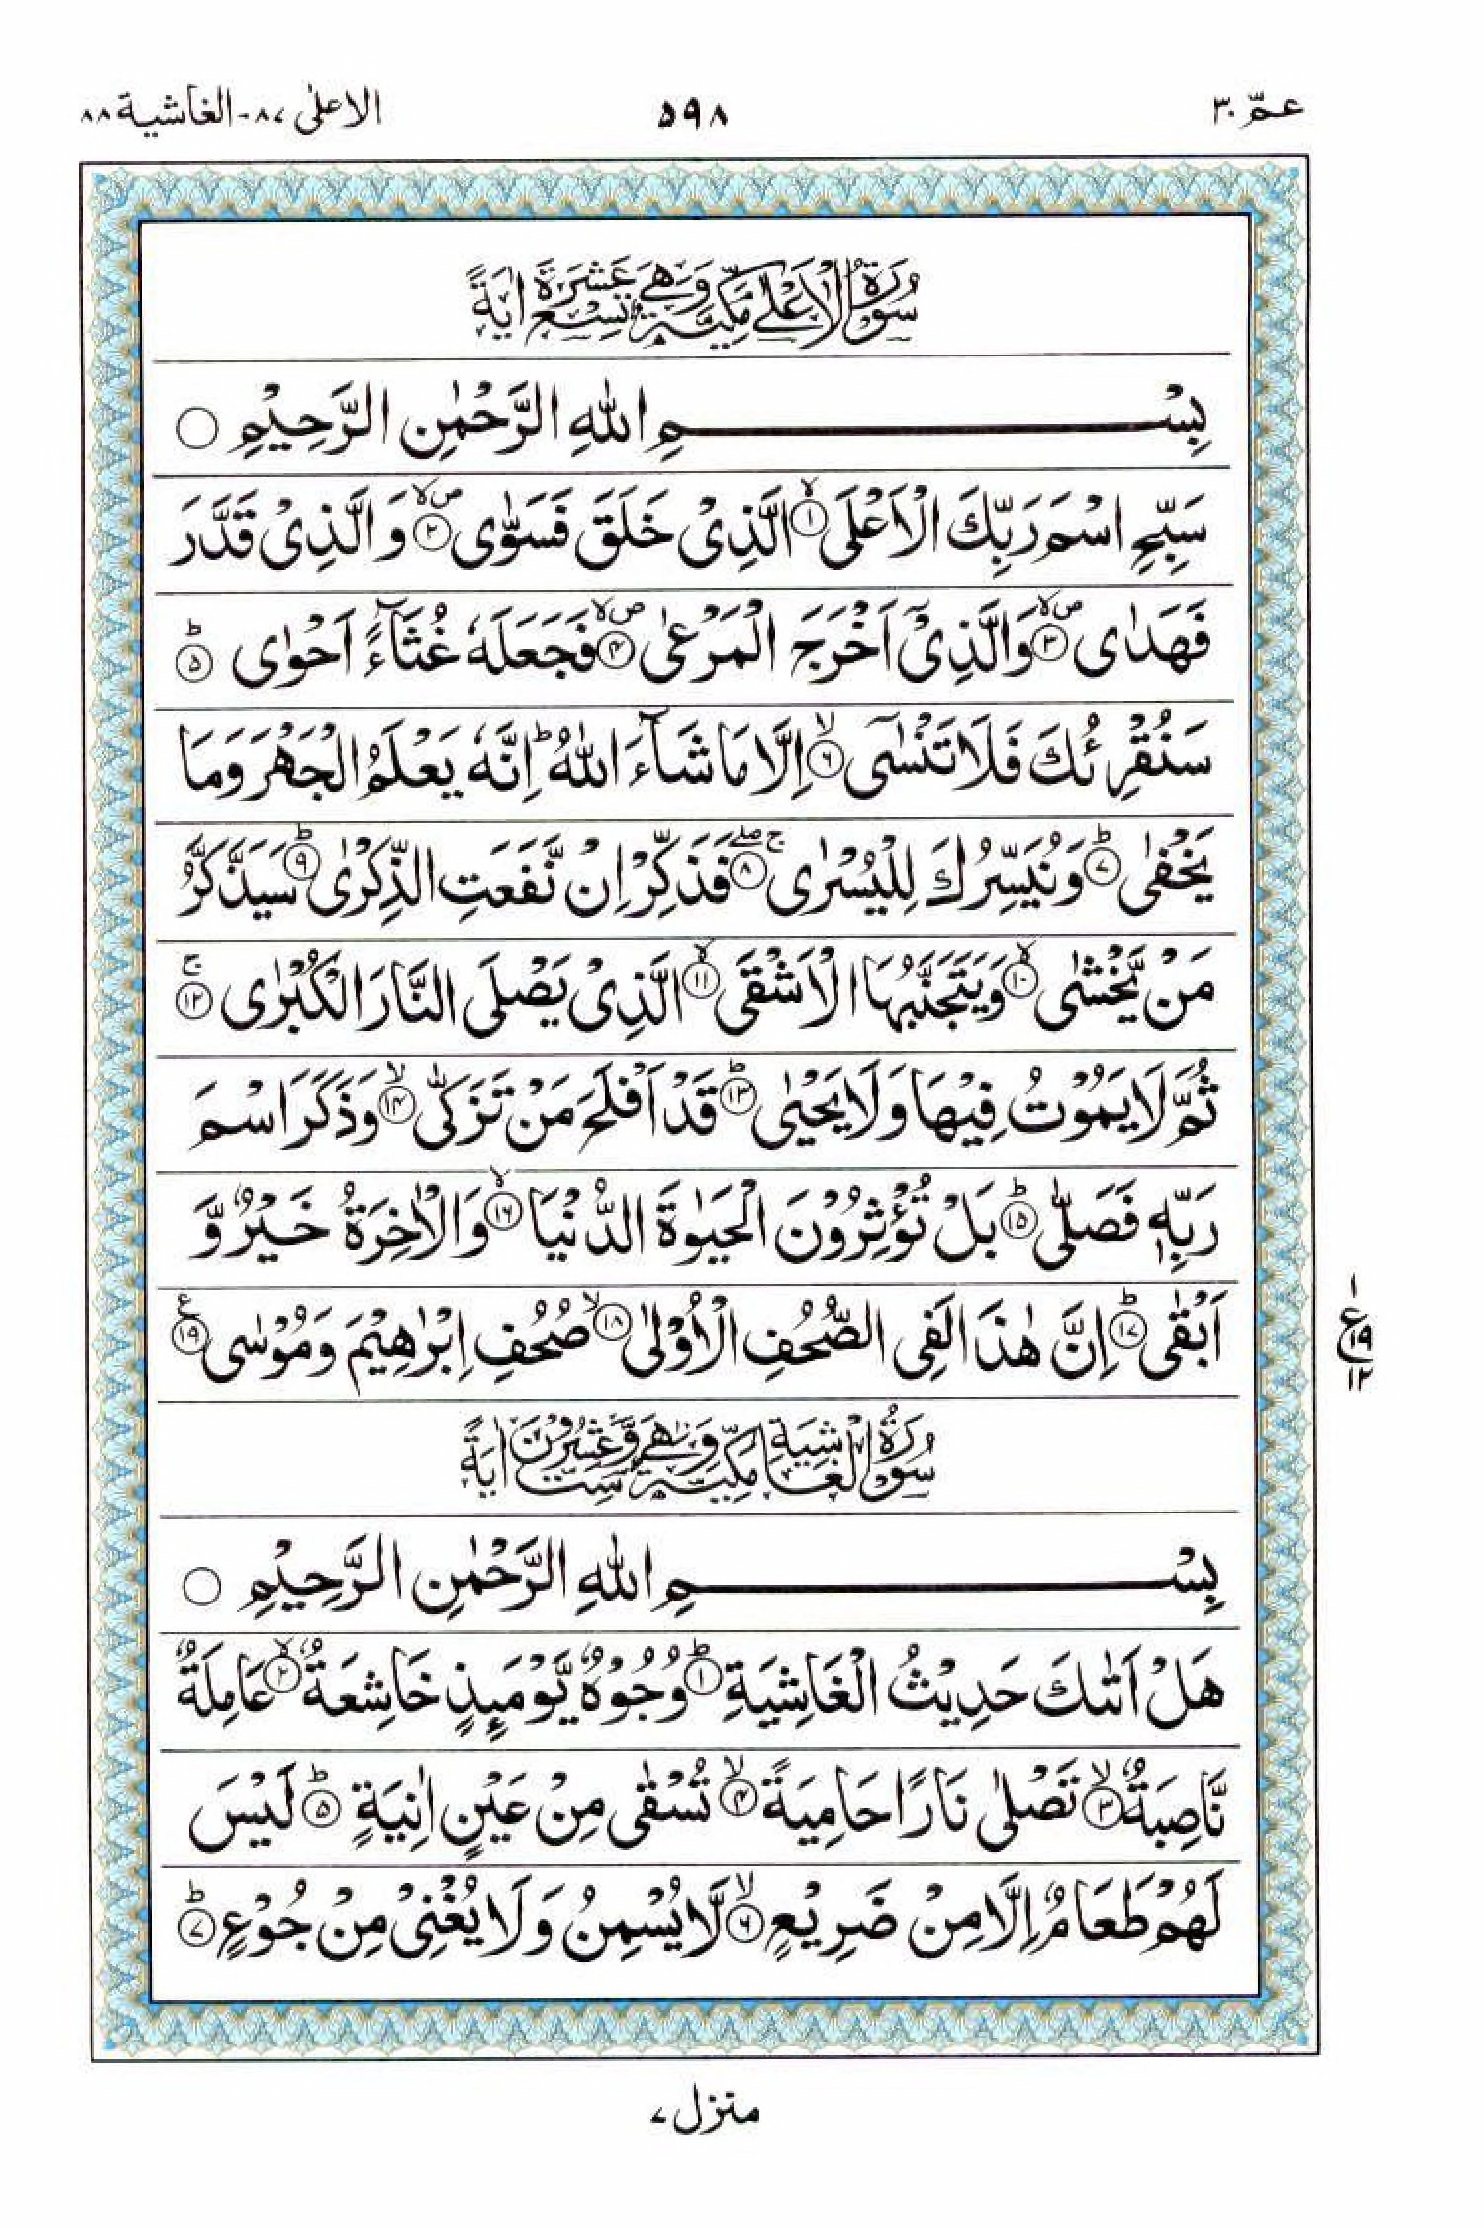 عمّ ٣٠ ٥٩٨ الاعلىٰ ٨٧-الغاشية ٨٨
سُوْرَةُ الْاَعْلٰى مَكِّيَّةٌ وَّهِيَ تِسْعَ عَشَرَةَ اٰيَةً
بِسْمِ اللّٰهِ الرَّحْمٰنِ الرَّحِيْمِ ○
سَبِّحِ اسْمَ رَبِّكَ الْاَعْلَى ۙ﴿١﴾ الَّذِىْ خَلَقَ فَسَوّٰى ۪ۙ﴿٢﴾ وَالَّذِىْ قَدَّرَ
فَهَدٰى ۪ۙ﴿٣﴾ وَالَّذِىْۤ اَخْرَجَ الْمَرْعٰى ۪ۙ﴿٤﴾ فَجَعَلَهٗ غُثَآءً اَحْوٰى ؕ﴿٥﴾
سَنُقْرِئُكَ فَلَا تَنْسٰٓى ۙ﴿٦﴾ اِلَّا مَا شَآءَ اللّٰهُ ؕ اِنَّهٗ يَعْلَمُ الْجَهْرَ وَمَا
يَخْفٰى ؕ﴿٧﴾ وَنُيَسِّرُكَ لِلْيُسْرٰى ۖۚ﴿٨﴾ فَذَكِّرْ اِنْ نَّفَعَتِ الذِّكْرٰى ؕ﴿٩﴾ سَيَذَّكَّرُ
مَنْ يَّخْشٰى ۙ﴿١٠﴾ وَيَتَجَنَّبُهَا الْاَشْقَى ۙ﴿١١﴾ الَّذِىْ يَصْلَى النَّارَ الْكُبْرٰى ۚ﴿١٢﴾
ثُمَّ لَا يَمُوْتُ فِيْهَا وَلَا يَحْيٰى ؕ﴿١٣﴾ قَدْ اَفْلَحَ مَنْ تَزَكّٰى ۙ﴿١٤﴾ وَذَكَرَ اسْمَ
رَبِّهٖ فَصَلّٰى ؕ﴿١٥﴾ بَلْ تُؤْثِرُوْنَ الْحَيٰوةَ الدُّنْيَا ۙ﴿١٦﴾ وَالْاٰخِرَةُ خَيْرٌ وَّ
اَبْقٰى ؕ﴿١٧﴾ اِنَّ هٰذَا لَفِى الصُّحُفِ الْاُوْلٰى ۙ﴿١٨﴾ صُحُفِ اِبْرٰهِيْمَ وَمُوْسٰى ﴿١٩﴾ ع
١ ع ١٩ ١٢
سُوْرَةُ الْغَاشِيَةِ مَكِّيَّةٌ وَّهِيَ سِتٌّ وَّعِشْرُوْنَ اٰيَةً
بِسْمِ اللّٰهِ الرَّحْمٰنِ الرَّحِيْمِ ○
هَلْ اَتٰىكَ حَدِيْثُ الْغَاشِيَةِ ؕ﴿١﴾ وُجُوْهٌ يَّوْمَئِذٍ خَاشِعَةٌ ۙ﴿٢﴾ عَامِلَةٌ
نَّاصِبَةٌ ۙ﴿٣﴾ تَصْلٰى نَارًا حَامِيَةً ۙ﴿٤﴾ تُسْقٰى مِنْ عَيْنٍ اٰنِيَةٍ ؕ﴿٥﴾ لَيْسَ
لَهُمْ طَعَامٌ اِلَّا مِنْ ضَرِيْعٍ ۙ﴿٦﴾ لَّا يُسْمِنُ وَلَا يُغْنِىْ مِنْ جُوْعٍ ؕ﴿٧﴾
منزل ٧